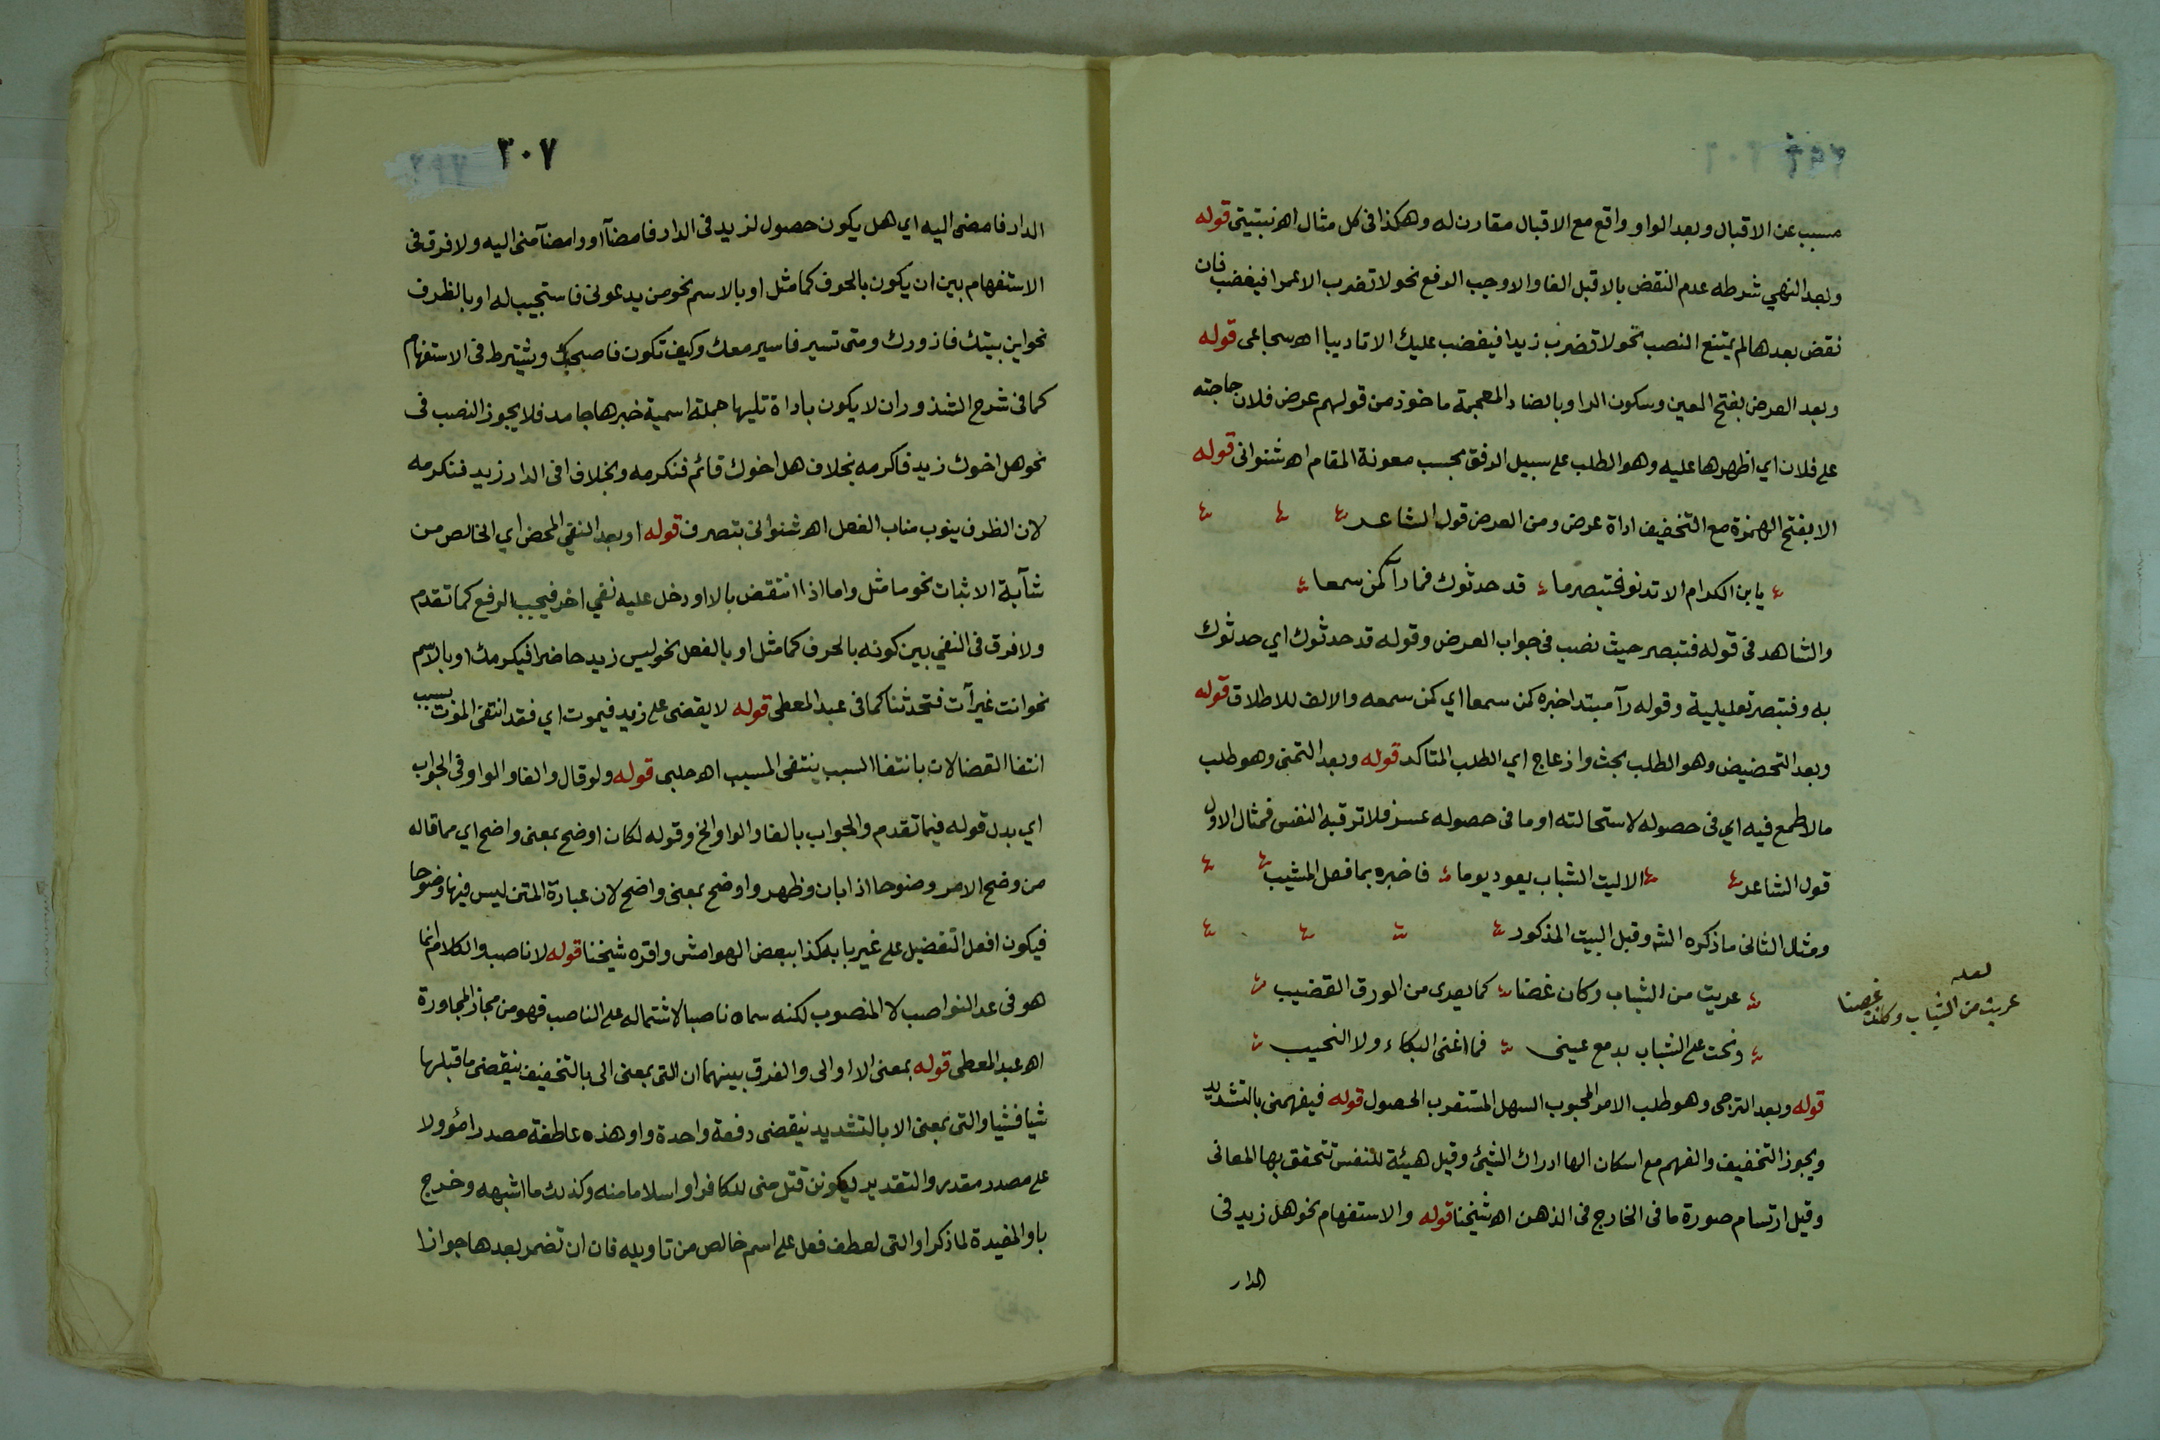 مسبب عن الاقبال وبعد الواو واقع مع الاقبال مقارن له وهكذا فى كل مثال اهر نبتيتى قوله
وبعد النهي شرطه عدم النقض بالا قبل الفا والا وجب الرفع نحو لا تضرب الا عمرا فيغضب فان
نقض بعدها لم يمتنع النصب نحو لا تضرب زيدا فيغضب عليك الا تاديبا اهر سجاعى قوله
وبعد العرض بفتح العين وسكون الرا وبالضاد المعجمة ماخوذ من قولهم عرض فلان حاجته
على فلان اي اظهرها عليه وهو الطلب على سبيل الرفق بحسب معونة المقام اهر شنوانى قوله
الا بفتح الهمزة مع التخفيف اداة عرض ومن العرض قول الشاعر
يا بن الكرام الا تدنو فتبصر ما قد حدثوك فما رآ كمن سمعا
والشاهد فى قوله فتبصر حيث نصب فى جواب العرض وقوله قد حدثوك اي حدثوك
به وفتبصر تعليلية وقوله رآ مبتدا خبره كمن سمعا اي كمن سمعه والالف للاطلاق قوله
وبعد التحضيض وهو الطلب بحث وازعاج اي الطلب المتاكد قوله وبعد التمنى وهو طلب
مالا طمع فيه اي فى حصوله لاستحالته او ما فى حصوله عسر فلا ترقبه النفس فمثال الاول
قول الشاعر الا ليت الشباب يعود يوما فاخبره بما فعل المشيب
ومثل الثانى ما ذكره الشه وقبل البيت المذكور
عريت من الشباب وكان غضا كما يعرى من الورق القضيب
ونحت على الشباب بدمع عينى فما اغنى البكاء ولا النحيب
قوله وبعد الترجى وهو طلب الامر المحبوب السهل المستقرب الحصول قوله فيفهمنى بالتشديد
ويجوز التخفيف والفهم مع اسكان الها ادراك الشيئ وقيل هيئة للنفس تتحقق بها المعانى
وقيل ارتسام صورة ما فى الخارج فى الذهن اهر شيخنا قوله والاستفهام نحو هل زيد فى
الدار
لعله
عريت من الشباب وكنت غصنا
٣٠٧
الدار فامضى اليه اي هل يكون حصول لزيد فى الدار فامضآ او وامضآ منى اليه ولا فرق فى
الاستفهام بين ان يكون بالحرف كما مثل او بالاسم نحو من يدعونى فاستجيب له او بالظرف
نحو اين بيتك فازورك ومتى تسير فاسير معك وكيف تكون فاصحبك ويشترط فى الاستفهام
كما فى شرح الشذور ان لا يكون باداة تليها جملة اسمية خبرها جامد فلا يجوز النصب فى
نحو هل اخوك زيد فاكرمه بخلاف هل اخوك قائم فنكرمه وبخلاف افى الدار زيد فنكرمه
لان الظرف ينوب مناب الفعل اهر شنوانى بتصرف قوله او بعد النفي المحض اي الخالص من
شآبة الاثبات نحو ما مثل واما اذا انتقض بالا او دخل عليه نفي اخر فيجب الرفع كما تقدم
ولا فرق فى النفي بين كونه بالحرف كما مثل او بالفعل نحو ليس زيد حاضرا فيكرمك او بالاسم
نحو انت غير آت فتحدثنا كما فى عبد المعطى قوله لا يقضى على زيد فيموت اي فقد انتفى الموت بسبب
انتفا القضا لان بانتفا السبب ينتفى المسبب اهر حلبى قوله ولو قال والفا والواو فى الجواب
اي بدل قوله فيما تقدم والجواب بالفا والواو الخ وقوله لكان اوضح بمعنى واضح اي مما قاله
من وضح الامر وضوحا اذا بان وظهر واوضح بمعنى واضح لان عبارة المتن ليس فيها وضوحا
فيكون افعل التفضيل على غير بابه كذا ببعض الهوامش واقره شيخنا قوله لا ناصب والكلام انما
هو فى عد النواصب لا المنصوب لكنه سماه ناصبا لاشتماله على الناصب فهو من مجاز المجاورة
اهر عبد المعطى قوله بمعنى الا او الى والفرق بينهما ان التى بمعنى الى بالتخفيف ينقضى ما قبلها
شيا فشيا والتى بمعنى الا بالتشديد ينقضى دفعة واحدة واو هذه عاطفة مصدرا مؤولا
على مصدر مقدر والتقدير ليكونن قتل منى للكافر او اسلاما منه وكذلك ما اشبهه وخرج
باو المفيدة لما ذكر او التى لعطف فعل على اسم خالص من تاويله فان ان تضمر بعدها جوازا